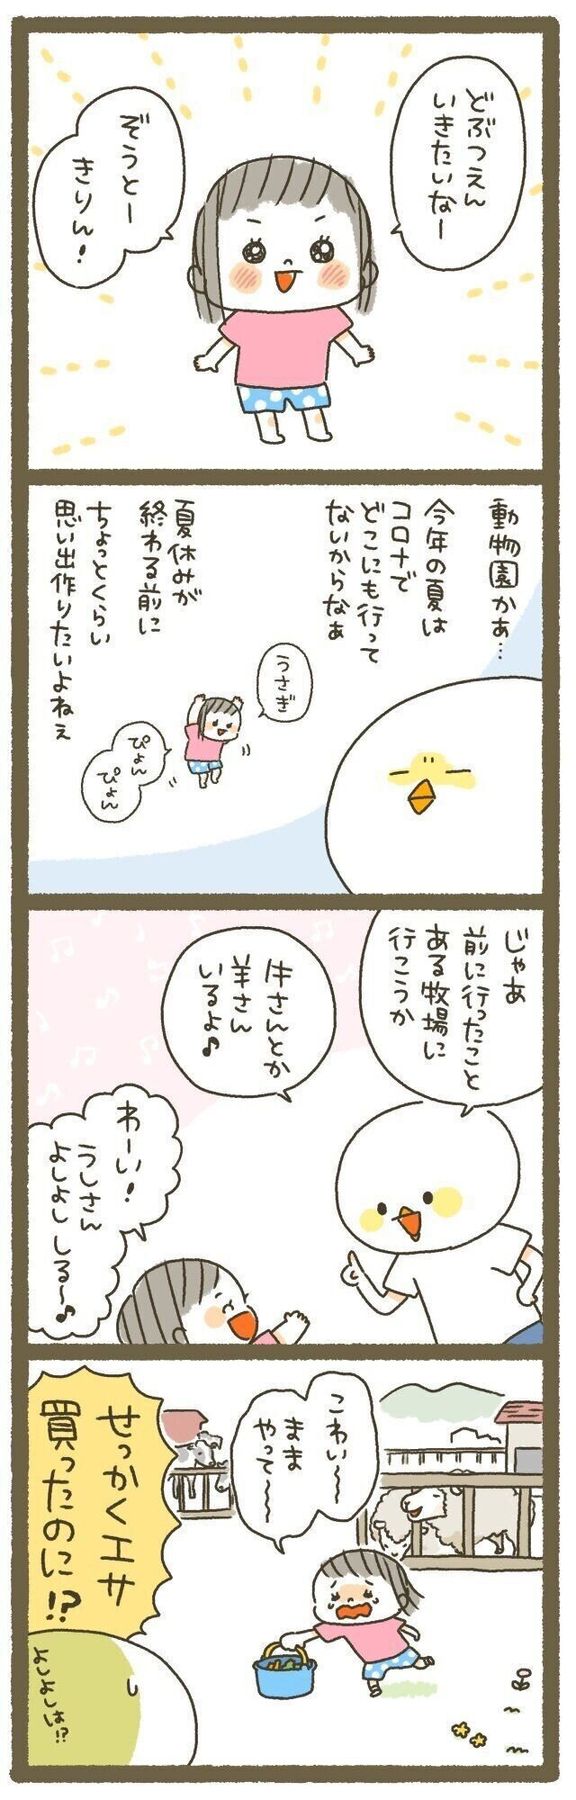 どぶつえん
いきたいなー
ぞうとー
きりん！
動物園かぁ…
今年の夏は
コロナで
どこにも行って
ないからなぁ
夏休みが
終わる前に
ちょっとくらい
思い出作りたいよねぇ
うさぎ
ぴょん
ぴょん
じゃあ
前に行ったこと
ある牧場に
行こうか
牛さんとか
羊さん
いるよ♪
わーい！
うしさん
よしよししる〜♪
こわい〜
まま
やって〜
せっかくエサ
買ったのに!?
よしよしは!?